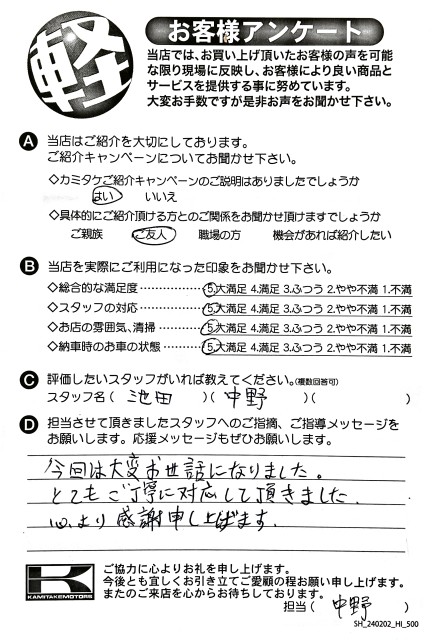 軽
お客様アンケート
当店では、お買い上げ頂いたお客様の声を可能
な限り現場に反映し、お客様により良い商品と
サービスを提供する事に努めています。
大変お手数ですが是非お声をお聞かせ下さい。
A 当店はご紹介を大切にしております。
ご紹介キャンペーンについてお聞かせ下さい。
◇カミタケご紹介キャンペーンのご説明はありましたでしょうか
はい いいえ
◇具体的にご紹介頂ける方とのご関係をお聞かせ頂けますでしょうか
ご親族 ご友人 職場の方 機会があれば紹介したい
B 当店を実際にご利用になった印象をお聞かせ下さい。
◇総合的な満足度 5.大満足 4.満足 3.ふつう 2.やや不満 1.不満
◇スタッフの対応 5.大満足 4.満足 3.ふつう 2.やや不満 1.不満
◇お店の雰囲気、清掃 5.大満足 4.満足 3.ふつう 2.やや不満 1.不満
◇納車時のお車の状態 5.大満足 4.満足 3.ふつう 2.やや不満 1.不満
C 評価したいスタッフがいれば教えてください。(複数回答可)
スタッフ名( 池田 )( 中野 )( )
D 担当させて頂きましたスタッフへのご指摘、ご指導メッセージを
お願いします。応援メッセージもぜひお願いします。
今回は大変お世話になりました。
とてもご丁寧に対応して頂きました。
心より感謝申し上げます。
K
KAMITAKEMOTORS
ご協力に心よりお礼を申し上げます。
今後とも宜しくお引き立てご愛顧の程お願い申し上げます。
またのご来店を心からお待ちしております。
担当( 中野 )
SH_240202_HI_500